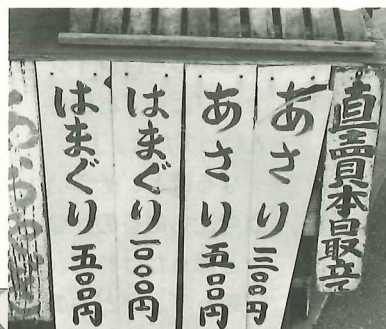 直売貝本日取立て
あさり三〇〇円
あさり五〇〇円
はまぐり一〇〇〇円
はまぐり五〇〇円